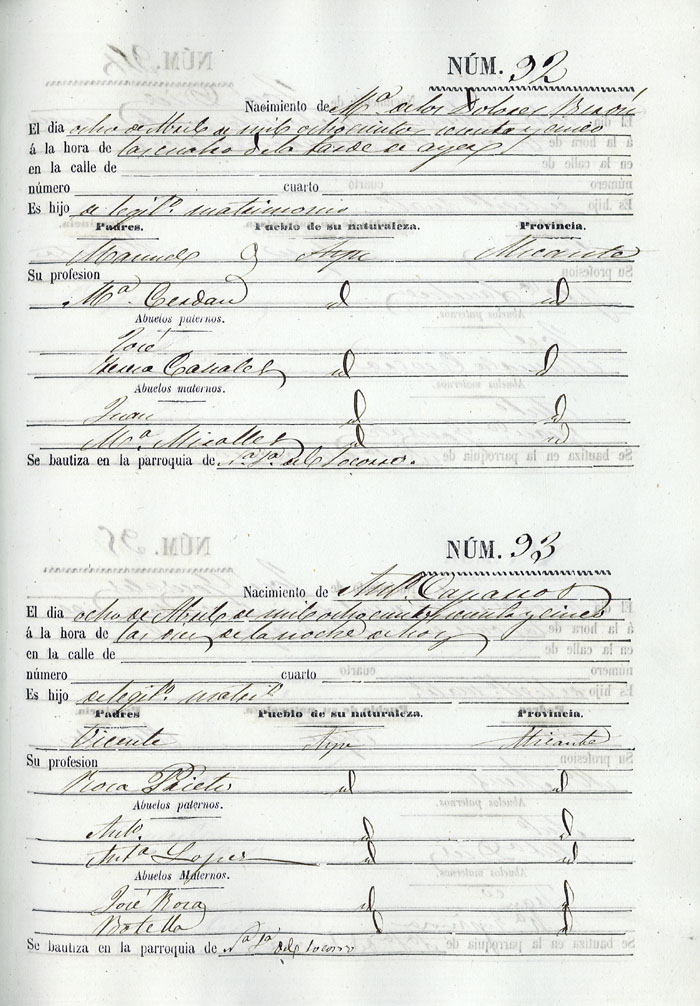 NÚM. 92
Nacimiento de Mª de los Dolores
El dia ocho de Abril de mil ochocientos sesenta y cinco
á la hora de las cuatro de la tarde de ayer
en la calle de
número cuarto
Es hijo de legitº matrimonio
Padres. Pueblo de su naturaleza. Provincia.
Manuel Aspe Alicante
Su profesion
Mª Cerdan id id
Abuelos paternos.
José
Canales id id
Abuelos maternos.
Juan id id
Mª Miralles id id
Se bautiza en la parroquia de del Socorro.
NÚM. 93
Nacimiento de Antº
El dia ocho de Abril de mil ochocientos sesenta y cinco
á la hora de las diez de la noche de hoy
en la calle de
número cuarto
Es hijo de legitº matriº
Padres Pueblo de su naturaleza. Provincia.
Vicente Aspe Alicante
Su profesion
Rosa Prieto id id
Abuelos paternos.
Antº id id
Antª Lopez id id
Abuelos Maternos.
José id id
Botella id id
Se bautiza en la parroquia de del Socorro